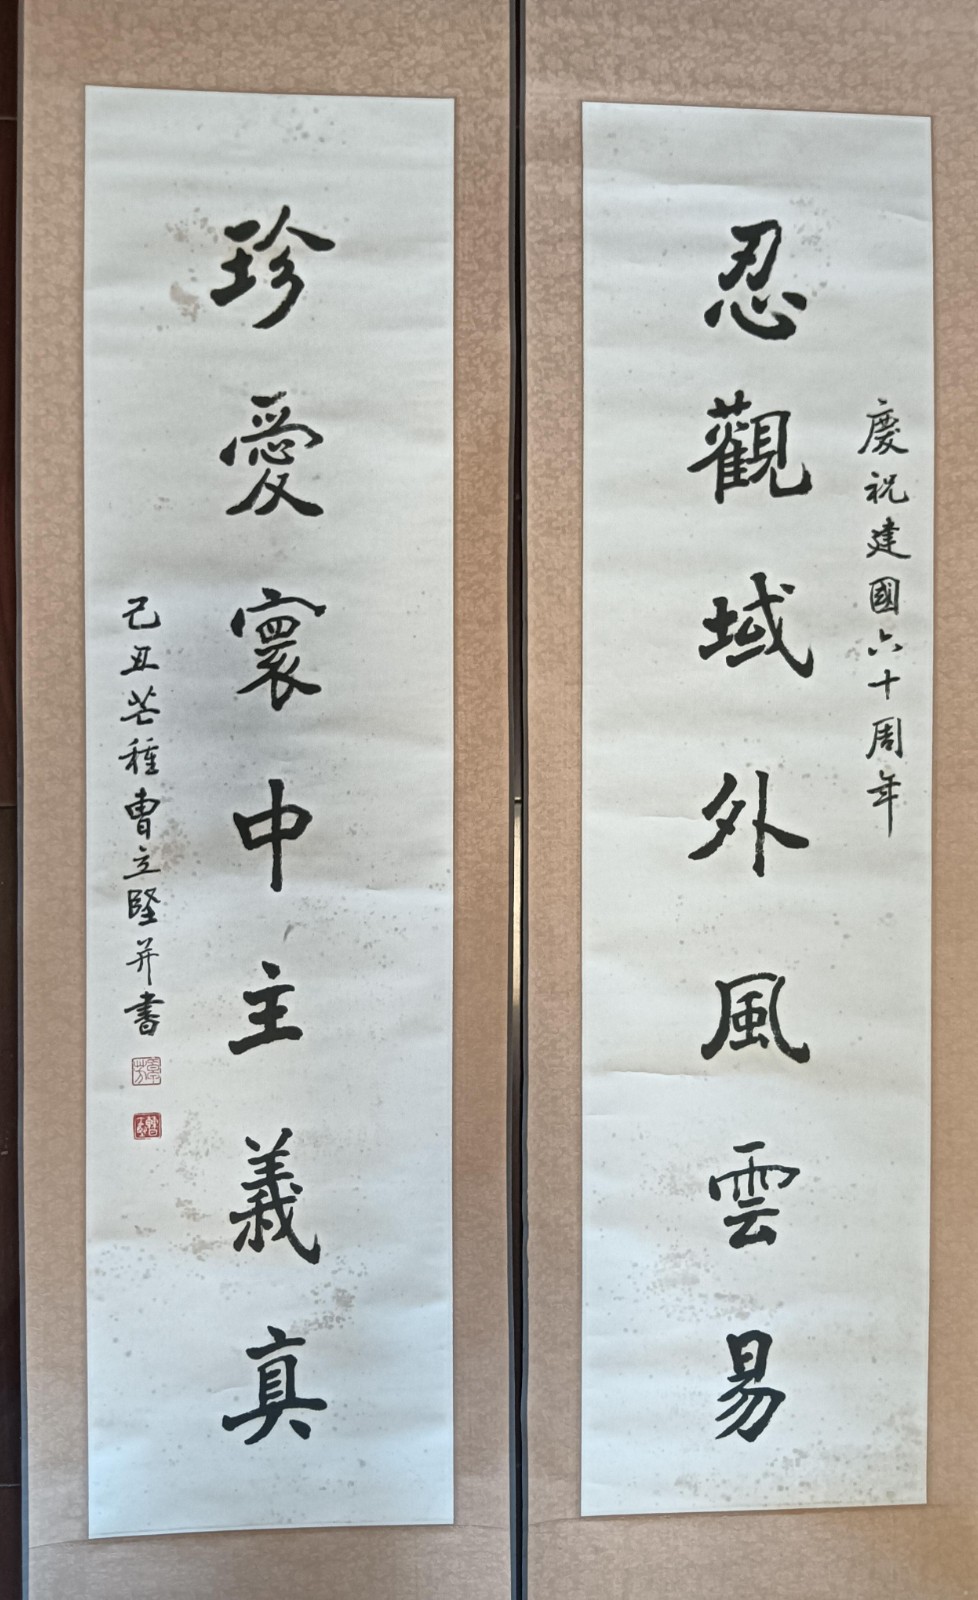 慶祝建國六十周年
忍觀域外風雲易
珍愛寰中主義真
己丑芒種曹立堅并書